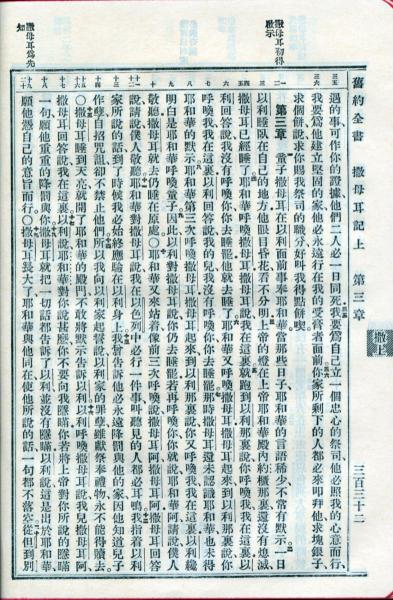 舊約全書 撒母耳記上 第三章 三百三十二
撒上
撒母耳初得
默示
撒母耳爲先
知
遇的事可作你的證據他們二人必一日同死我要爲自己立一個忠心的祭司他必照我的心意而行、
我要爲他建立堅固的家他必永遠行在我的受膏者面前你家所剩下的人都必來叩拜他求塊銀子、
求個餅說求你賜我祭司的職分好叫我得點餅喫
第三章 童子撒母耳在以利面前事奉耶和華當那些日子耶和華的言語稀少不常有默示一日
以利睡臥在自己的地方他眼目昏花看不分明上帝的燈在上帝耶和華殿內約櫃那裏還沒有熄滅
撒母耳已經睡了耶和華呼喚撒母耳撒母耳說我在這裏就跑到以利那裏說你呼喚我我在這裏以
利回答說我沒有呼喚你你去睡罷他就去睡了耶和華又呼喚撒母耳撒母耳起來到以利那裏說你
呼喚我我在這裏以利回答說我的兒我沒有呼喚你你去睡罷那時撒母耳還未認識耶和華也未得
耶和華的默示耶和華第三次呼喚撒母耳撒母耳起來到以利那裏說你又呼喚我我在這裏以利纔
明白是耶和華呼喚童子因此以利對撒母耳說你仍去睡罷若再呼喚你你就說耶和華阿請說僕人
敬聽撒母耳就去仍睡在原處〇耶和華又來站着像前三次呼喚說撒母耳阿撒母耳阿撒母耳回答
說請說僕人敬聽耶和華對撒母耳說我在以色列中必行一件事叫聽見的人都必耳鳴我指着以利
家所說的話到了時候我必始終應驗在以利身上我曾告訴他必永遠降罰與他的家因他知道兒子
作孽自招咒詛卻不禁止他們所以我向以利家起誓說以利家的罪孽雖獻祭奉禮物永不能得贖去
〇撒母耳睡到天亮就開了耶和華的殿門不敢將默示告訴以利以利呼喚撒母耳說我兒撒母耳阿
撒母耳回答說我在這裏以利說耶和華對你說甚麼你不要向我隱瞞你若將上帝對你所說的隱瞞
一句願他重重的降罰與你撒母耳就把一切話都告訴了以利並沒有隱瞞以利說這是出於耶和華
願他憑自己的意旨而行〇撒母耳長大了耶和華與他同在使他所說的話一句都不落空從但到別